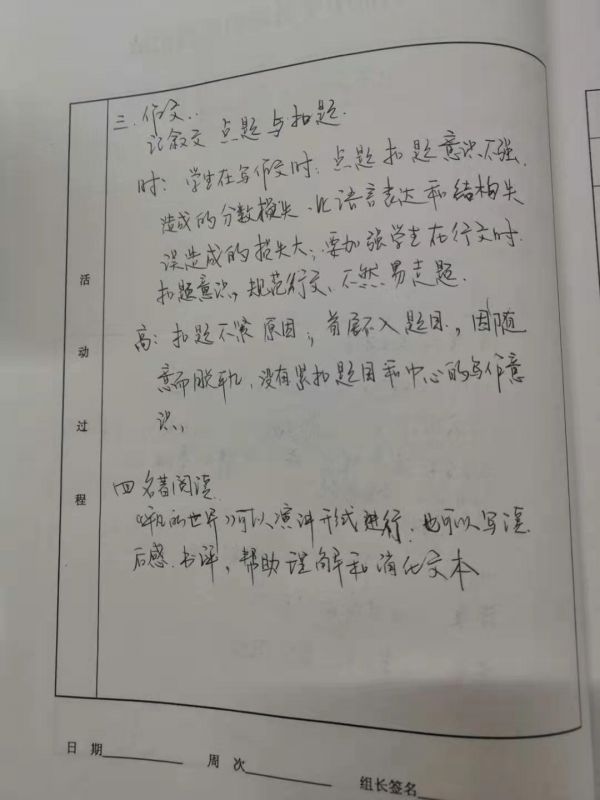 活动过程
三.作文..
记叙文 点题与扣题.
时:学生在写作文时,点题扣题意识不强,
造成的分数损失,比语言表达和结构失
误造成的损失大;要加强学生在行文时
扣题意识,规范行文,不然易走题.
高:扣题不紧原因;首尾不入题目,因随
意而脱轨,没有紧扣题目和中心的写作意
识,
四名著阅读
《平凡的世界》可以演讲形式进行,也可以写读
后感.书评,帮助理解和消化文本
日 期
周 次
组长签名